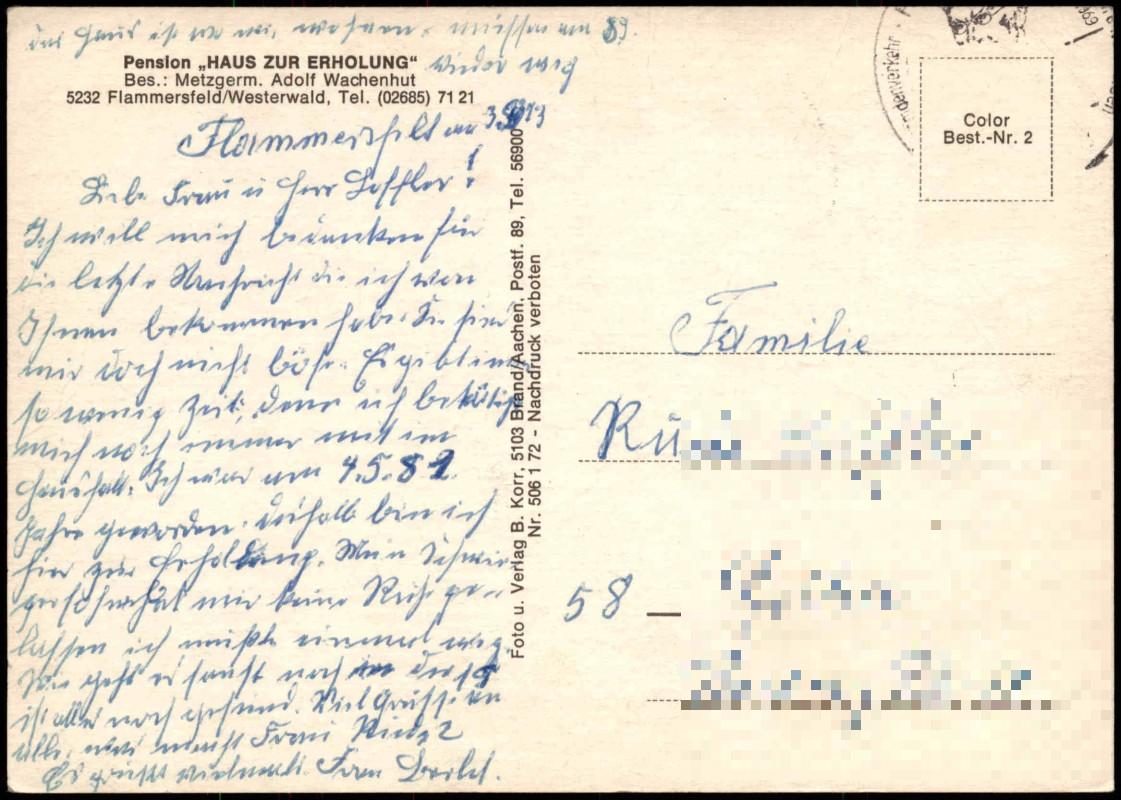 das Haus ist wo wir wohnen. müssen am 89.
wieder weg
Pension „HAUS ZUR ERHOLUNG“
Bes.: Metzgerm. Adolf Wachenhut
5232 Flammersfeld/Westerwald, Tel. (02685) 71 21
Flammersfelt am 3.
Liebe Frau u Herr Loffler!
Ich will mich bedanken für
die letzte Nachricht die ich von
Ihnen bekommen habe. Sie sind
mir doch nicht böse. Es gibt immer
so wenig Zeit, denn ich betätige
mich noch immer mit im
Haushalt. Ich war am 4.5. 82
Jahre geworden. deshalb bin ich
hier zur Erholung. Mein Schwie
gersohn hat mir keine Ruhe ge-
lassen ich mußte einmal weg.
Wie geht es sonst noch
ist alles noch gesund. Viel Grüsse an
alle. was macht Frau
Es grüßt vielmals Frau
Foto u. Verlag B. Korr, 5103 Brand/Aachen, Postf. 89, Tel. 56900
Nr. 506 1 72 – Nachdruck verboten
Color
Best.-Nr. 2
Familie
Rü
58 —